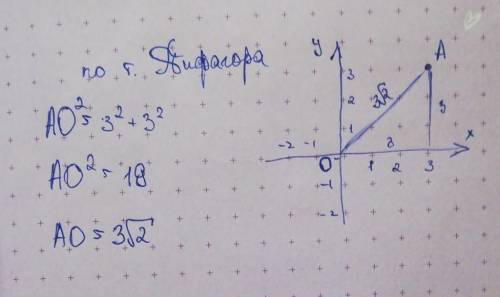 по т. Пифагора
AO² = 3² + 3²
AO² = 18
AO = 3√2
y
A
3
2
1
3√2
3
-2 -1
O
3
1 2 3
x
-1
-2